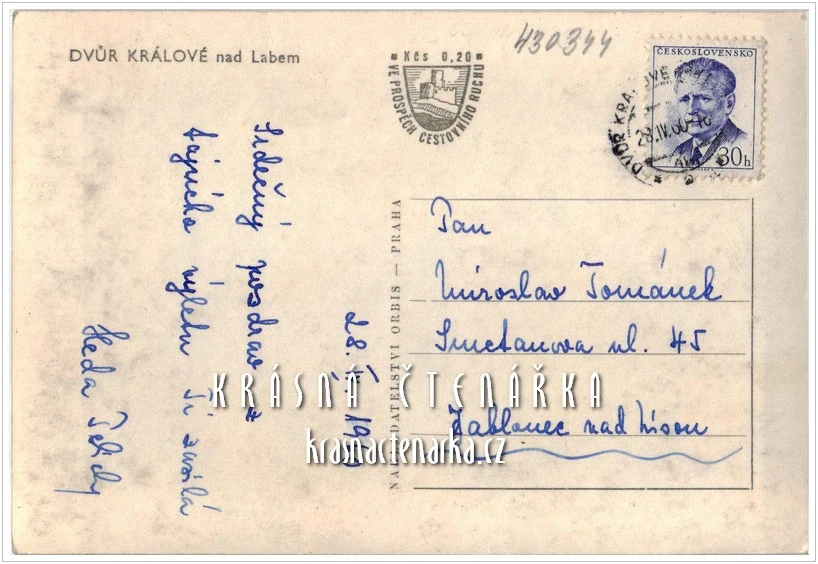 DVŮR KRÁLOVÉ nad Labem
Kčs 0,20
VE PROSPĚCH CESTOVNÍHO RUCHU
430344
ČESKOSLOVENSKO
30h
DVŮR KRÁLOVÉ
28.IV.60-16
Srdečný pozdrav z
tajného výletu Ti zasílá
Heda
28. 1960
NAKLADATELSTVÍ ORBIS — PRAHA
Pan
Miroslav Tománek
Smetanova ul. 45
Jablonec nad Nisou
KRÁSNÁ ČTENÁŘKA
krasnactenarka.cz